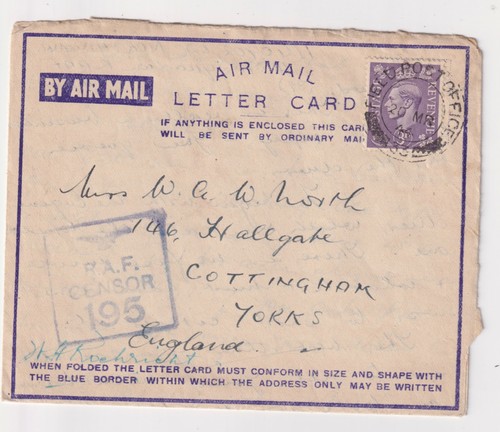 BY AIR MAIL
AIR MAIL
LETTER CARD
IF ANYTHING IS ENCLOSED THIS CARD
WILL BE SENT BY ORDINARY MAIL
REVENUE
FIELD POST OFFICE
Mrs W. A. W. North
146, Hallgate
COTTINGHAM
YORKS
England.
R.A.F.
CENSOR
195
WHEN FOLDED THE LETTER CARD MUST CONFORM IN SIZE AND SHAPE WITH
THE BLUE BORDER WITHIN WHICH THE ADDRESS ONLY MAY BE WRITTEN